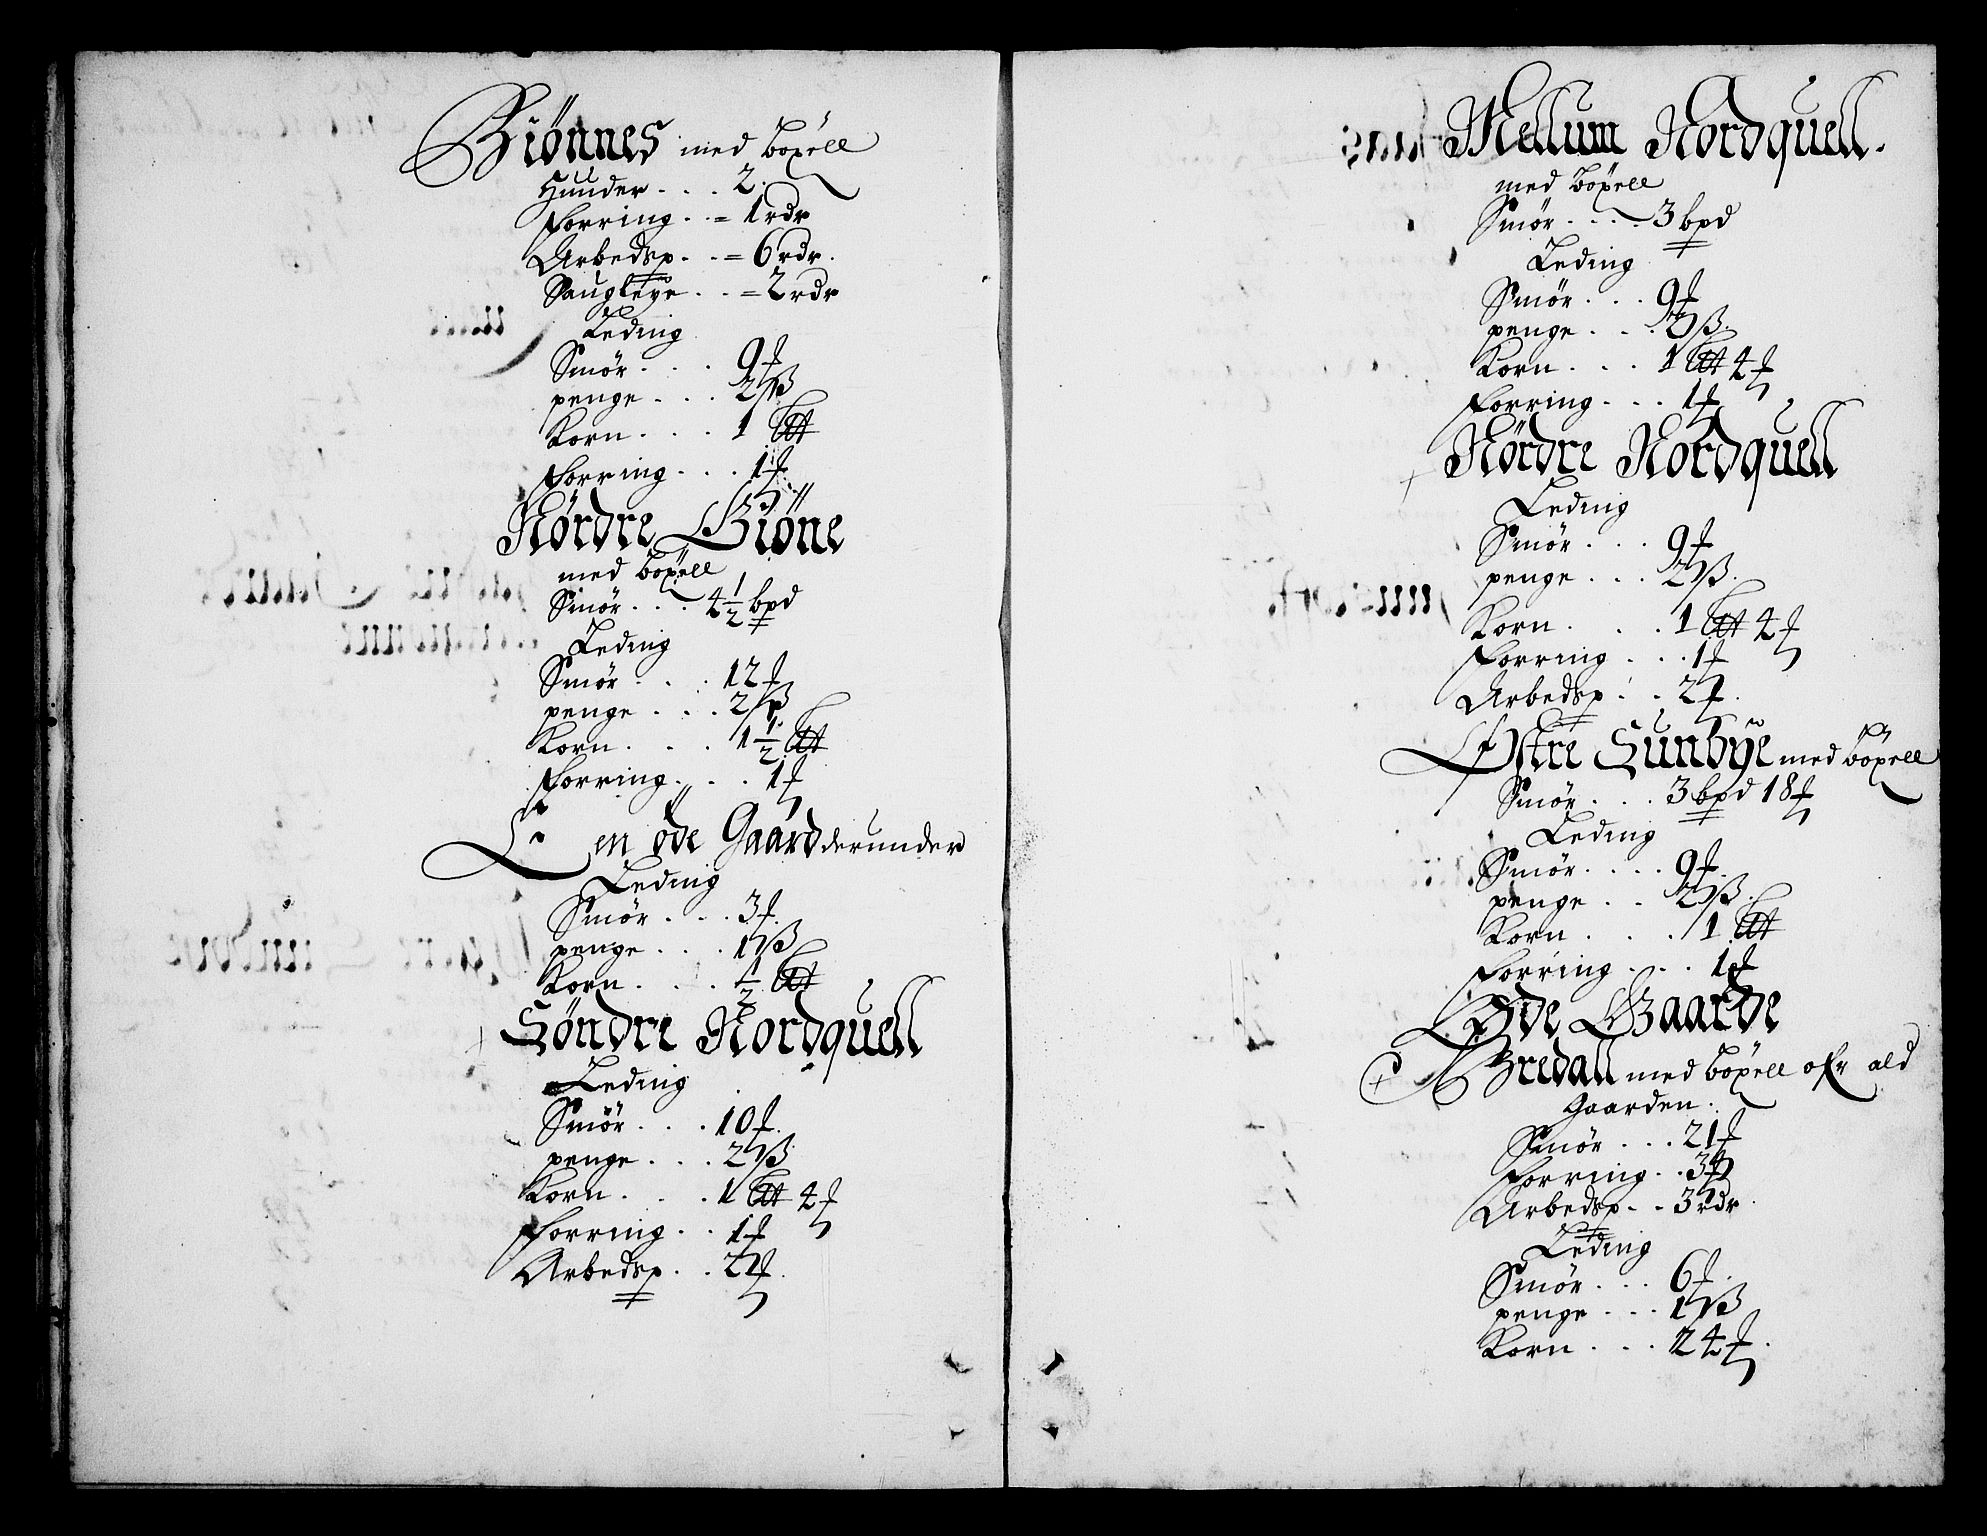 Biönnes med böxell
Huuder . . . 2.
Forring . . = 1 rdr
Arbedsp . . = 6 rdr.
Saugleye . . = 2 rdr
Leding
Smör . . . 9
penge . . . 2 ß
Korn . . . 1
Forring . . . 1
Nördre Biöne
med böxell
Smör . . . 4½ bpd
Leding
Smör . . . 12
penge . . . 2 ß
Korn . . . 1½
Forring . . . 1
En öde Gaard derunder
Leding
Smör . . . 3
penge . . . 1 ß
Korn . . . ½
Söndre Nordquell
Leding
Smör . . . 10
penge . . . 2 ß
Korn . . . 1 4
Forring . . 1
Arbedsp . . 2
Mellum Nordquell.
med böxell
Smör . . . 3 bpd
Leding
Smör . . . 9
penge . . . 2 ß.
Korn . . . 1 4
Forring . . . 1
Nördre Nordquell
Leding
Smör . . . 9
penge . . . 2 ß.
Korn . . . 1 4
Forring . . . 1
Arbedsp . . 2
Östre Sundbÿe med böxell
Smör . . . 3 bpd 18
Leding
Smör . . . . 9
penge . . 2 ß.
Korn . . . 1
Forring . . . 1
Öde Gaarde
Bredall med böxell ofr ald
Gaarden.
Smör . . . 21
Forring . . 3
Arbedsp . . 3 rdr.
Leding
Smör . . . 6
penge . . . 1 ß
Korn . . . 24